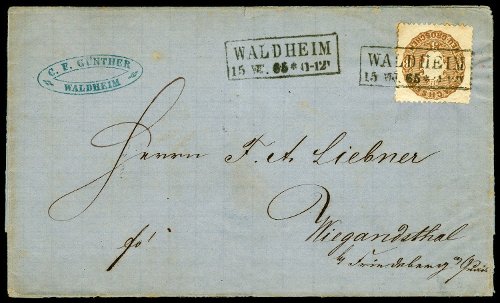 C. F. GÜNTHER
WALDHEIM
WALDHEIM
15 VII. 65 * 11-12
WALDHEIM
15 65 * 11-12
Herrn F. A. Liebner
fo!
Wiegandsthal
Friedeberg